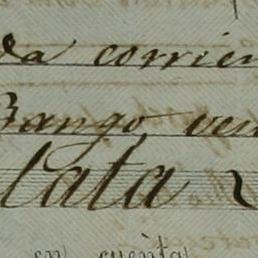 da corrien
Bango, ven
lata
en cuenta